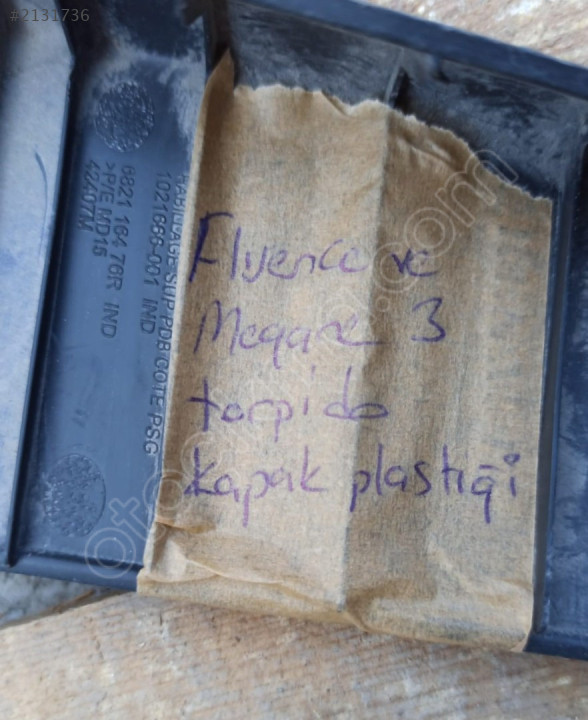 #2131736
HABILLAGE SUP PDB COTE PSG
1021666-001 IND
6821 164 76R IND
>P/E MD15
42407M
Fluence ve
Megane 3
torpido
kapak plastiği